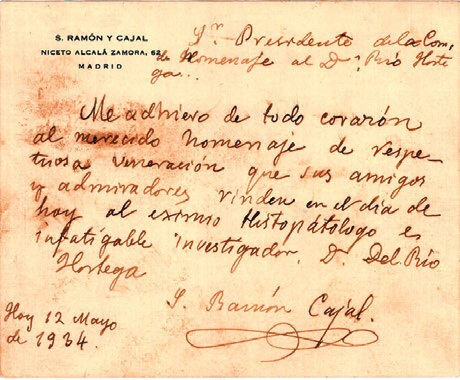 S. RAMÓN Y CAJAL
NICETO ALCALÁ ZAMORA, 62
MADRID
Sr. Presidente de la Com,
de Homenaje al Dr. Río Horte
ga...
Me adhiero de todo corazón
al merecido homenaje de respe-
tuosa veneración que sus amigos
y admiradores rinden en el día de
hoy al eximio Histopatólogo e
infatigable investigador, D. Del Río
Hortega
S. Ramón Cajal.
Hoy 12 Mayo
de 1934.